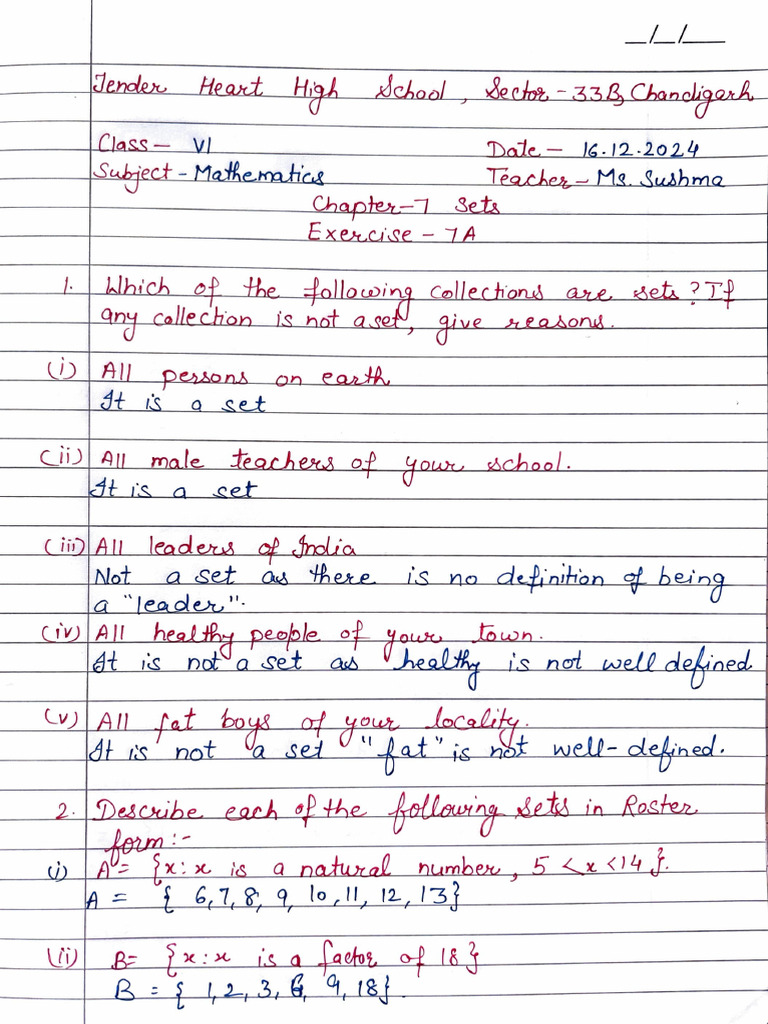 _/_/__
Tender Heart High School, Sector-33B, Chandigarh
Class- VI Date- 16.12.2024
Subject-Mathematics Teacher-Ms. Sushma
Chapter-7 Sets
Exercise-7A
1. Which of the following collections are sets? If
any collection is not a set, give reasons.
(i) All persons on earth
It is a set
(ii) All male teachers of your school.
It is a set
(iii) All leaders of India
Not a set as there is no definition of being
a "leader".
(iv) All healthy people of your town.
It is not a set as healthy is not well defined
(v) All fat boys of your locality.
It is not a set "fat" is not well-defined.
2. Describe each of the following sets in Roster
form:-
(i) A= {x:x is a natural number, 5 <x <14}.
A = { 6,7,8, 9, 10, 11, 12, 13}
(ii) B= {x:x is a factor of 18}
B = { 1,2, 3, 6, 9, 18}.